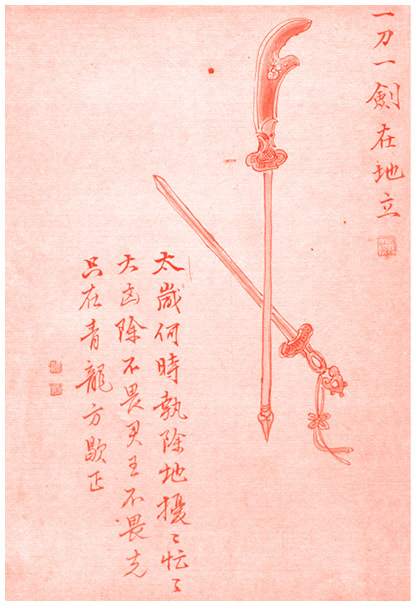 一刀一劍在地立
太歲何時執除地擾〻忙〻
大凶除不畏君王不畏克
只在青龍方歇正